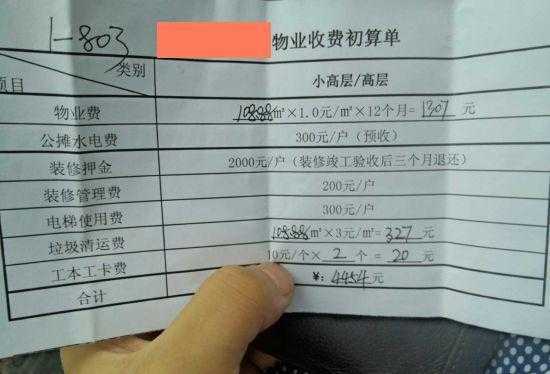 1-803
物业收费初算单
类别
项目
小高层/高层
物业费 108.88m²×1.0元/m²×12个月=1307元
公摊水电费 300元/户（预收）
装修押金 2000元/户（装修竣工验收后三个月退还）
装修管理费 200元/户
电梯使用费 300元/户
垃圾清运费 108.88m²×3元/m²=327元
工本工卡费 10元/个×2个=20元
合计 ¥：4454元